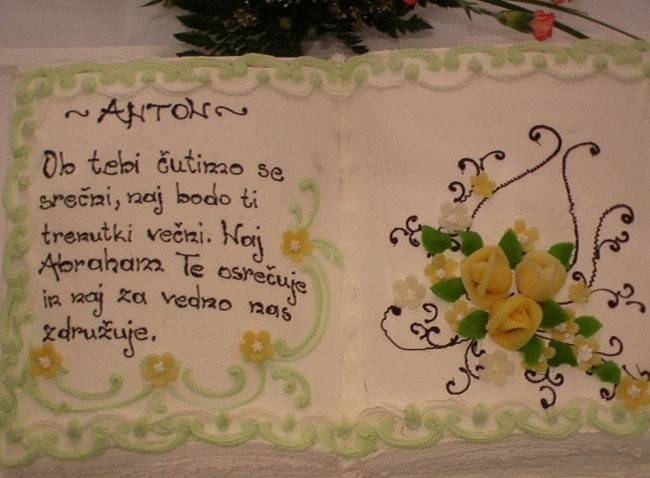 ~ ANTON ~
Ob tebi čutimo se
srečni, naj bodo ti
trenutki večni. Naj
Abraham Te osrečuje
in naj za vedno nas
združuje.